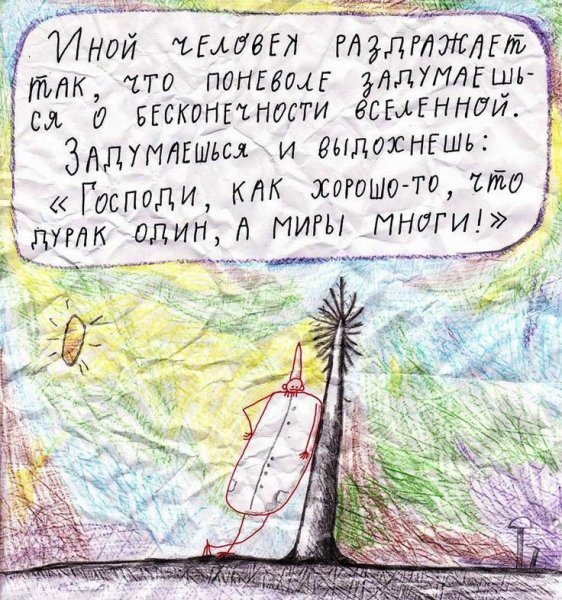 Иной человек раздражает
так, что поневоле задумаешь-
ся о бесконечности вселенной.
Задумаешься и выдохнешь:
«Господи, как хорошо-то, что
дурак один, а миры многи!»